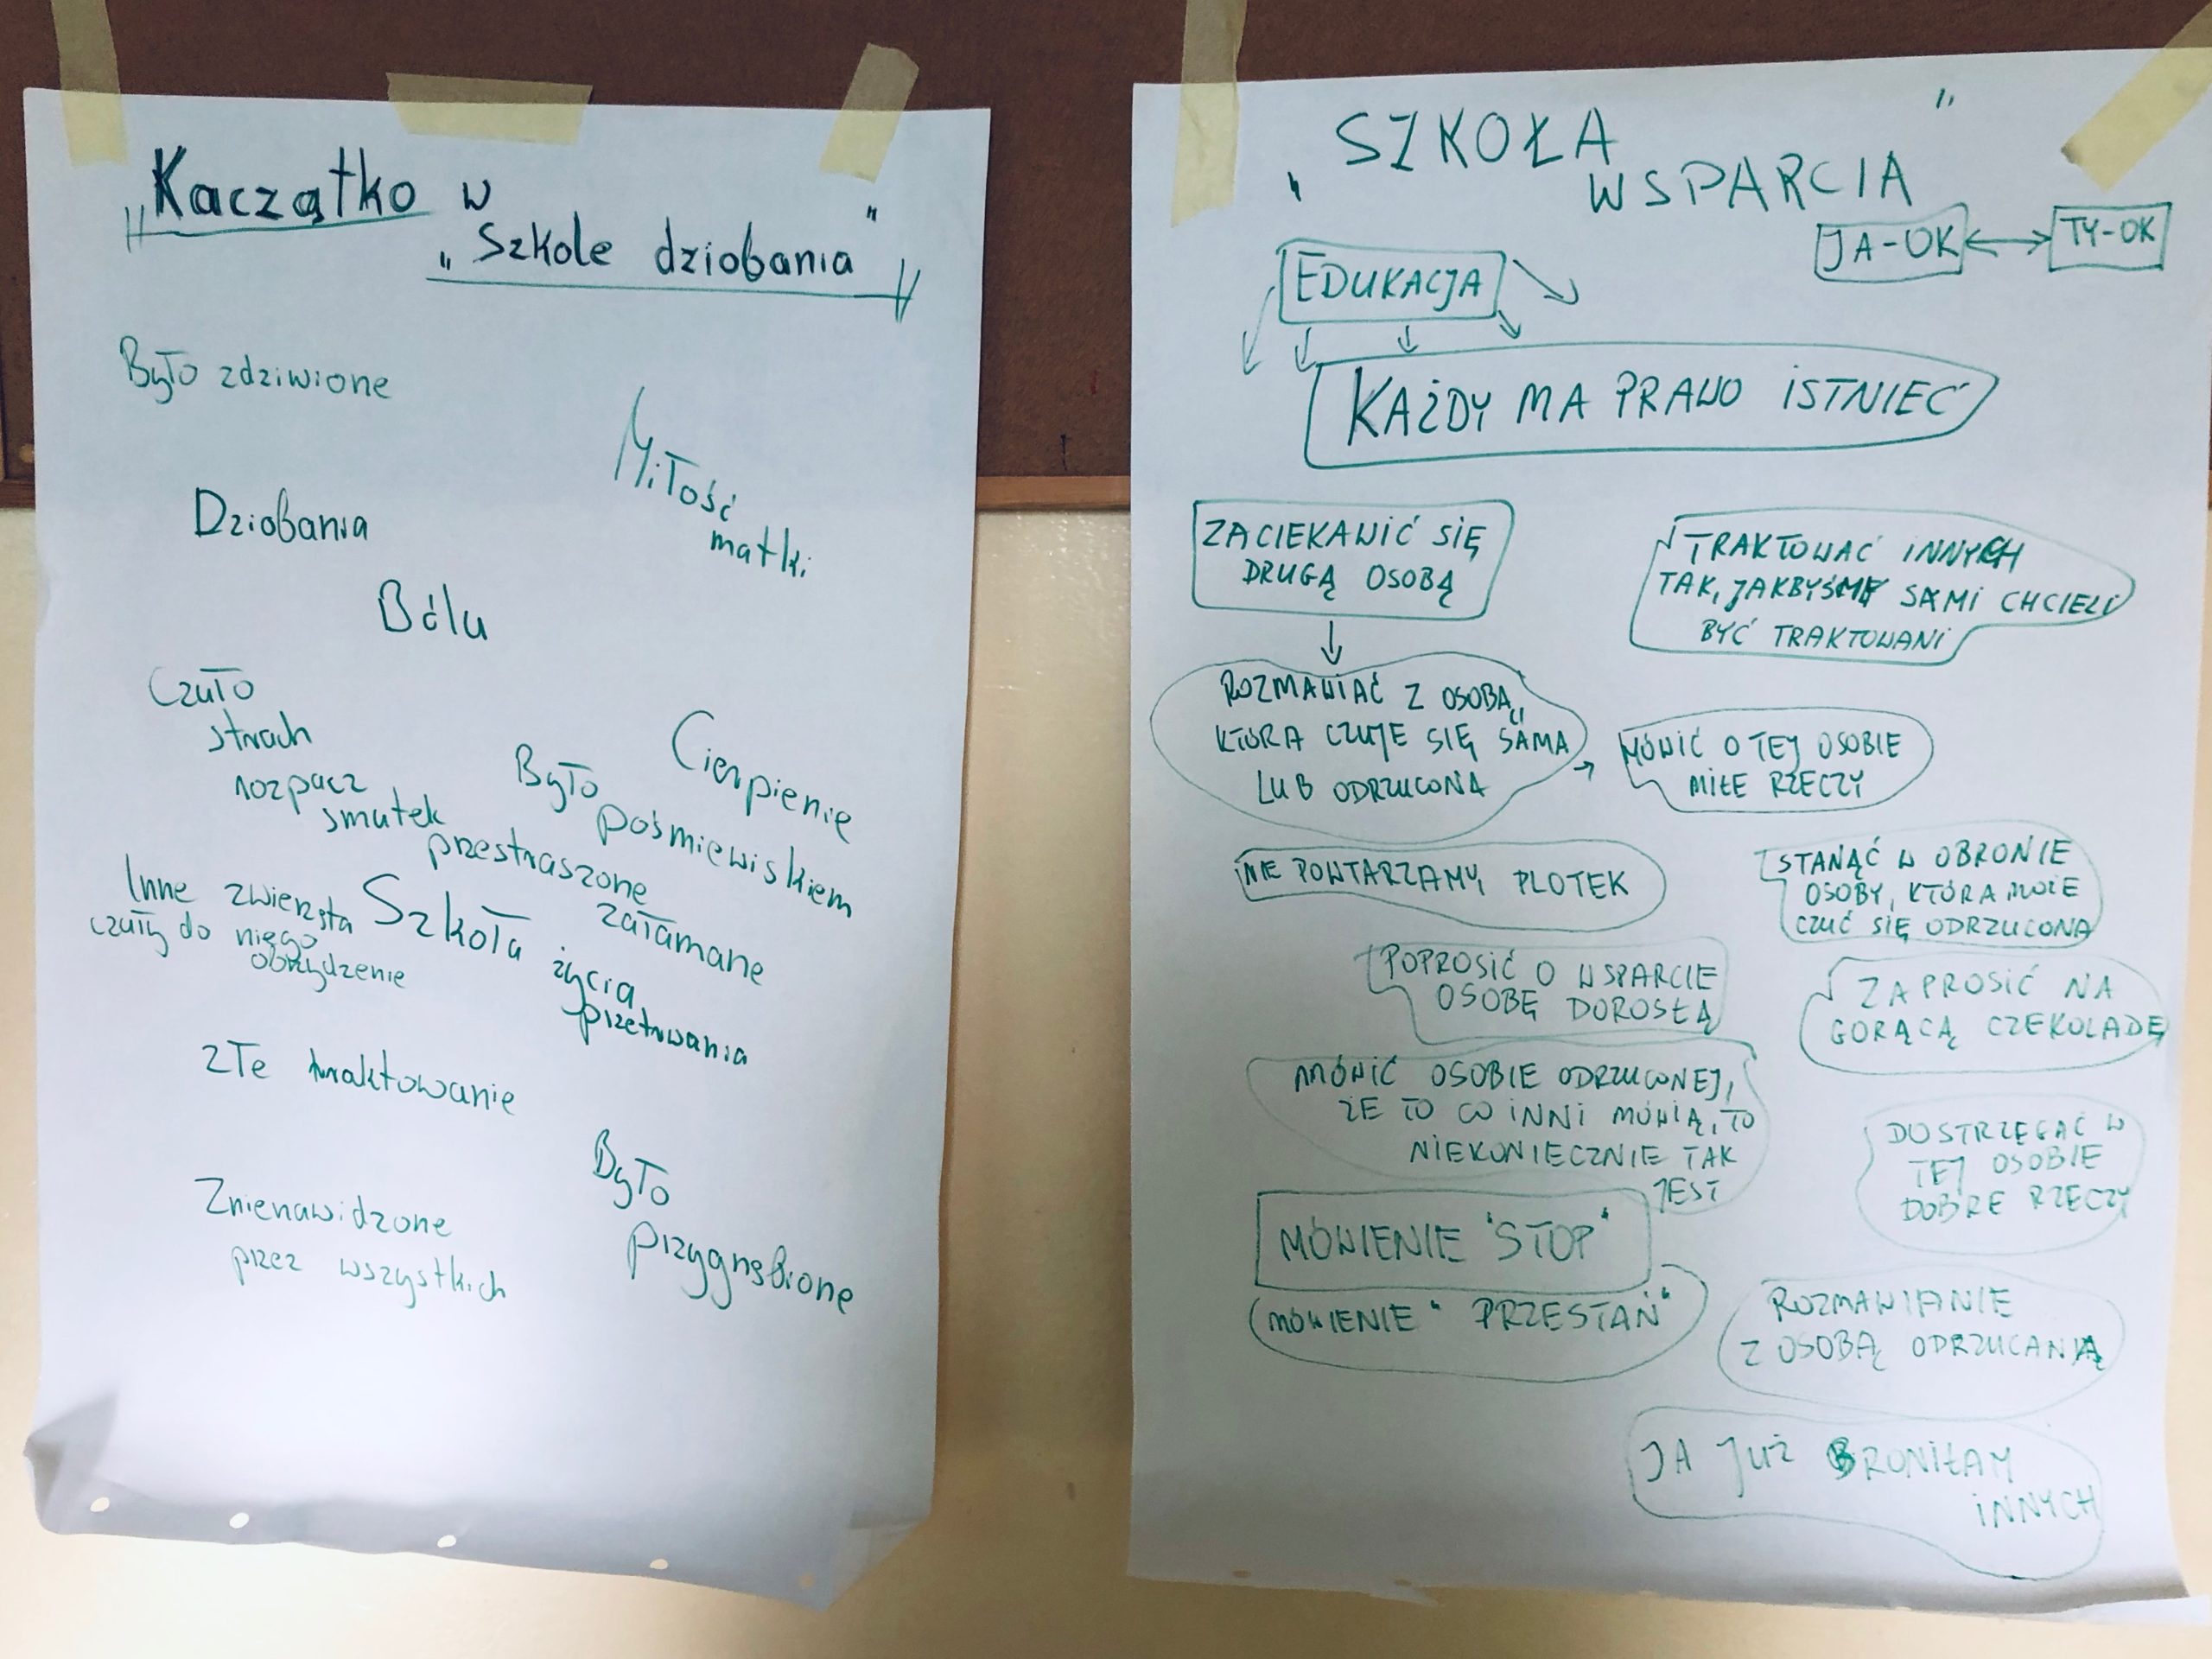 „Kaczątko w
„Szkole dziobania"
Było zdziwione
Miłość
matki
Dziobania
Bólu
Czuło
strach
rozpacz
smutek
przestraszone
Cierpienie
Było
pośmiewiskiem
załamane
Inne zwierzęta
czuły do niego
obrzydzenie
Szkoła życia,
przetrwania
złe traktowanie
Było
przygnębione
Znienawidzone
przez wszystkich
„SZKOŁA
WSPARCIA"
JA-OK ↔ TY-OK
EDUKACJA
KAŻDY MA PRAWO ISTNIEĆ
ZACIEKAWIĆ SIĘ
DRUGĄ OSOBĄ
TRAKTOWAĆ INNYCH
TAK, JAKBYŚMY SAMI CHCIELI
BYĆ TRAKTOWANI
ROZMAWIAĆ Z OSOBĄ,
KTÓRA CZUJE SIĘ SAMA
LUB ODRZUCONA
MÓWIĆ O TEJ OSOBIE
MIŁE RZECZY
NIE POWTARZAMY PLOTEK
STANĄĆ W OBRONIE
OSOBY, KTÓRA MOŻE
CZUĆ SIĘ ODRZUCONA
POPROSIĆ O WSPARCIE
OSOBĘ DOROSŁĄ
ZAPROSIĆ NA
GORĄCĄ CZEKOLADĘ
MÓWIĆ OSOBIE ODRZUCONEJ,
ŻE TO CO INNI MÓWIĄ, TO
NIEKONIECZNIE TAK
JEST
DOSTRZEGAĆ W
TEJ OSOBIE
DOBRE RZECZY
MÓWIENIE "STOP"
MÓWIENIE "PRZESTAŃ"
ROZMAWIANIE
Z OSOBĄ ODRZUCANĄ
JA JUŻ BRONIŁAM
INNYCH